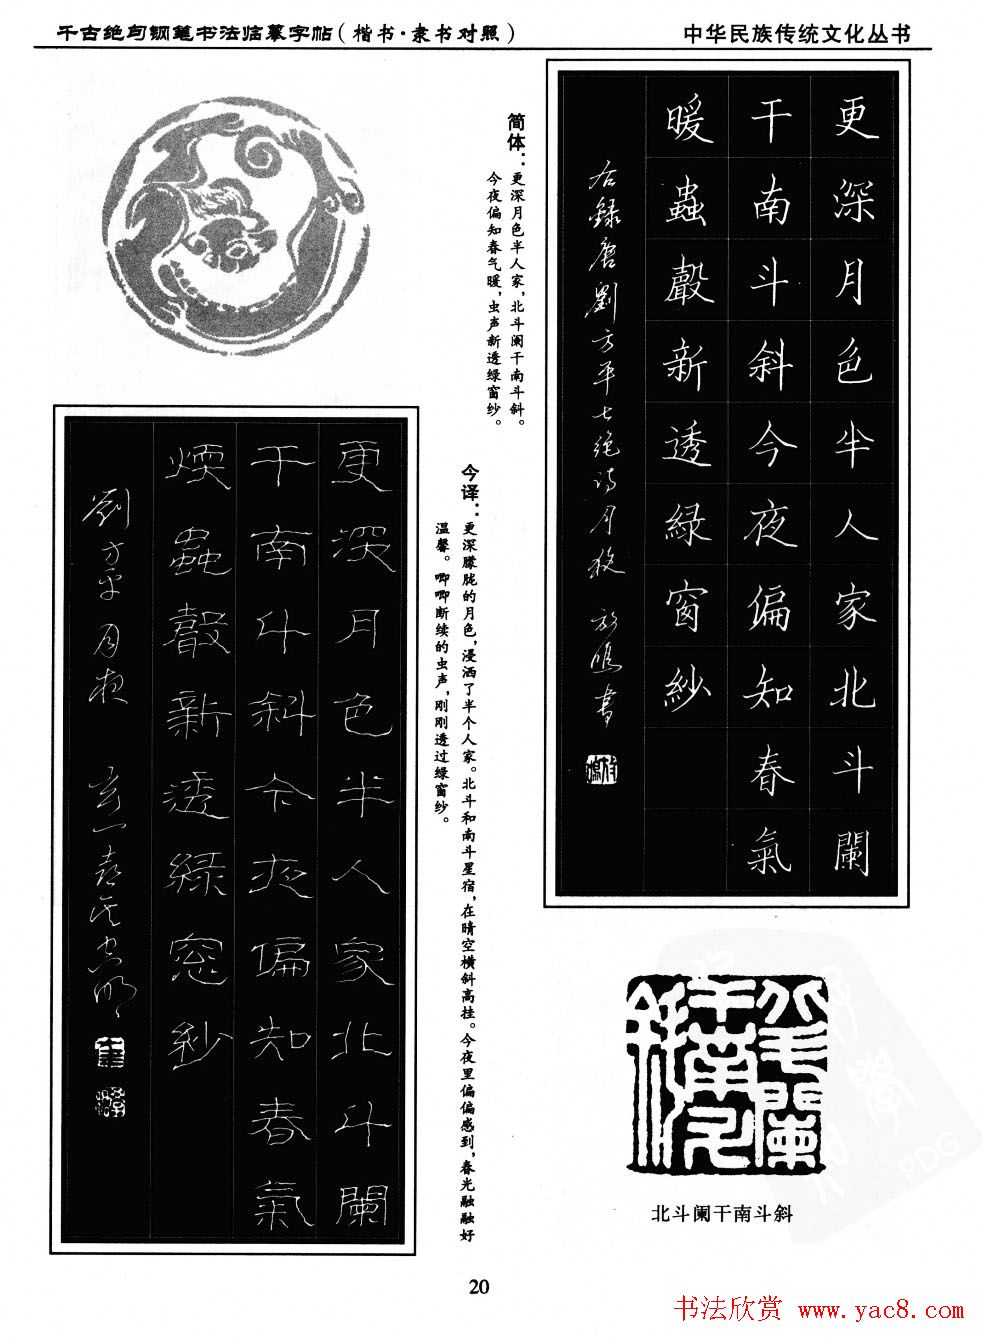 千古绝句钢笔书法临摹字帖(楷书·隶书对照)
中华民族传统文化丛书
更深月色半人家北斗闌
干南斗斜今夜偏知春氣
暖蟲聲新透綠窗紗
右錄唐劉方平七绝诗月夜
简体：更深月色半人家，北斗阑干南斗斜。
今夜偏知春气暖，虫声新透绿窗纱。
今译：更深朦胧的月色，浸洒了半个人家。北斗和南斗星宿，在晴空横斜高挂。今夜里偏偏感到，春光融融好
温馨。唧唧断续的虫声，刚刚透过绿窗纱。
更深月色半人家北斗闌
干南斗斜今夜偏知春氣
煖蟲聲新透綠窓紗
劉方平月夜
北斗阑干南斗斜
北斗阑干南斗斜
20
书法欣赏 www.yac8.com
PDG